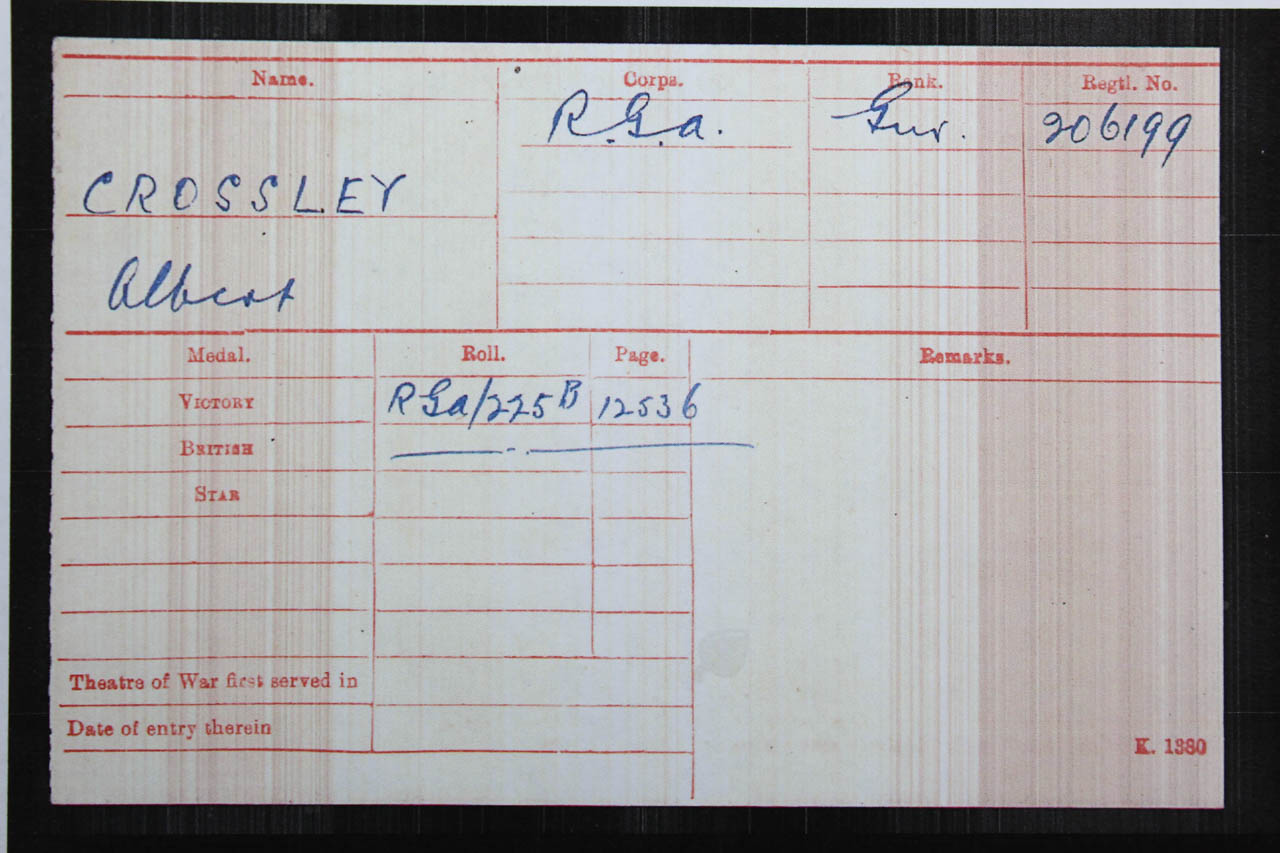 Name. Corps. Rank. Regtl. No.
R.G.a. Gnr. 206199
CROSSLEY
Albert
Medal. Roll. Page. Remarks.
VICTORY RGa/225B 12536
BRITISH —"—
STAR
Theatre of War first served in
Date of entry therein
K. 1380